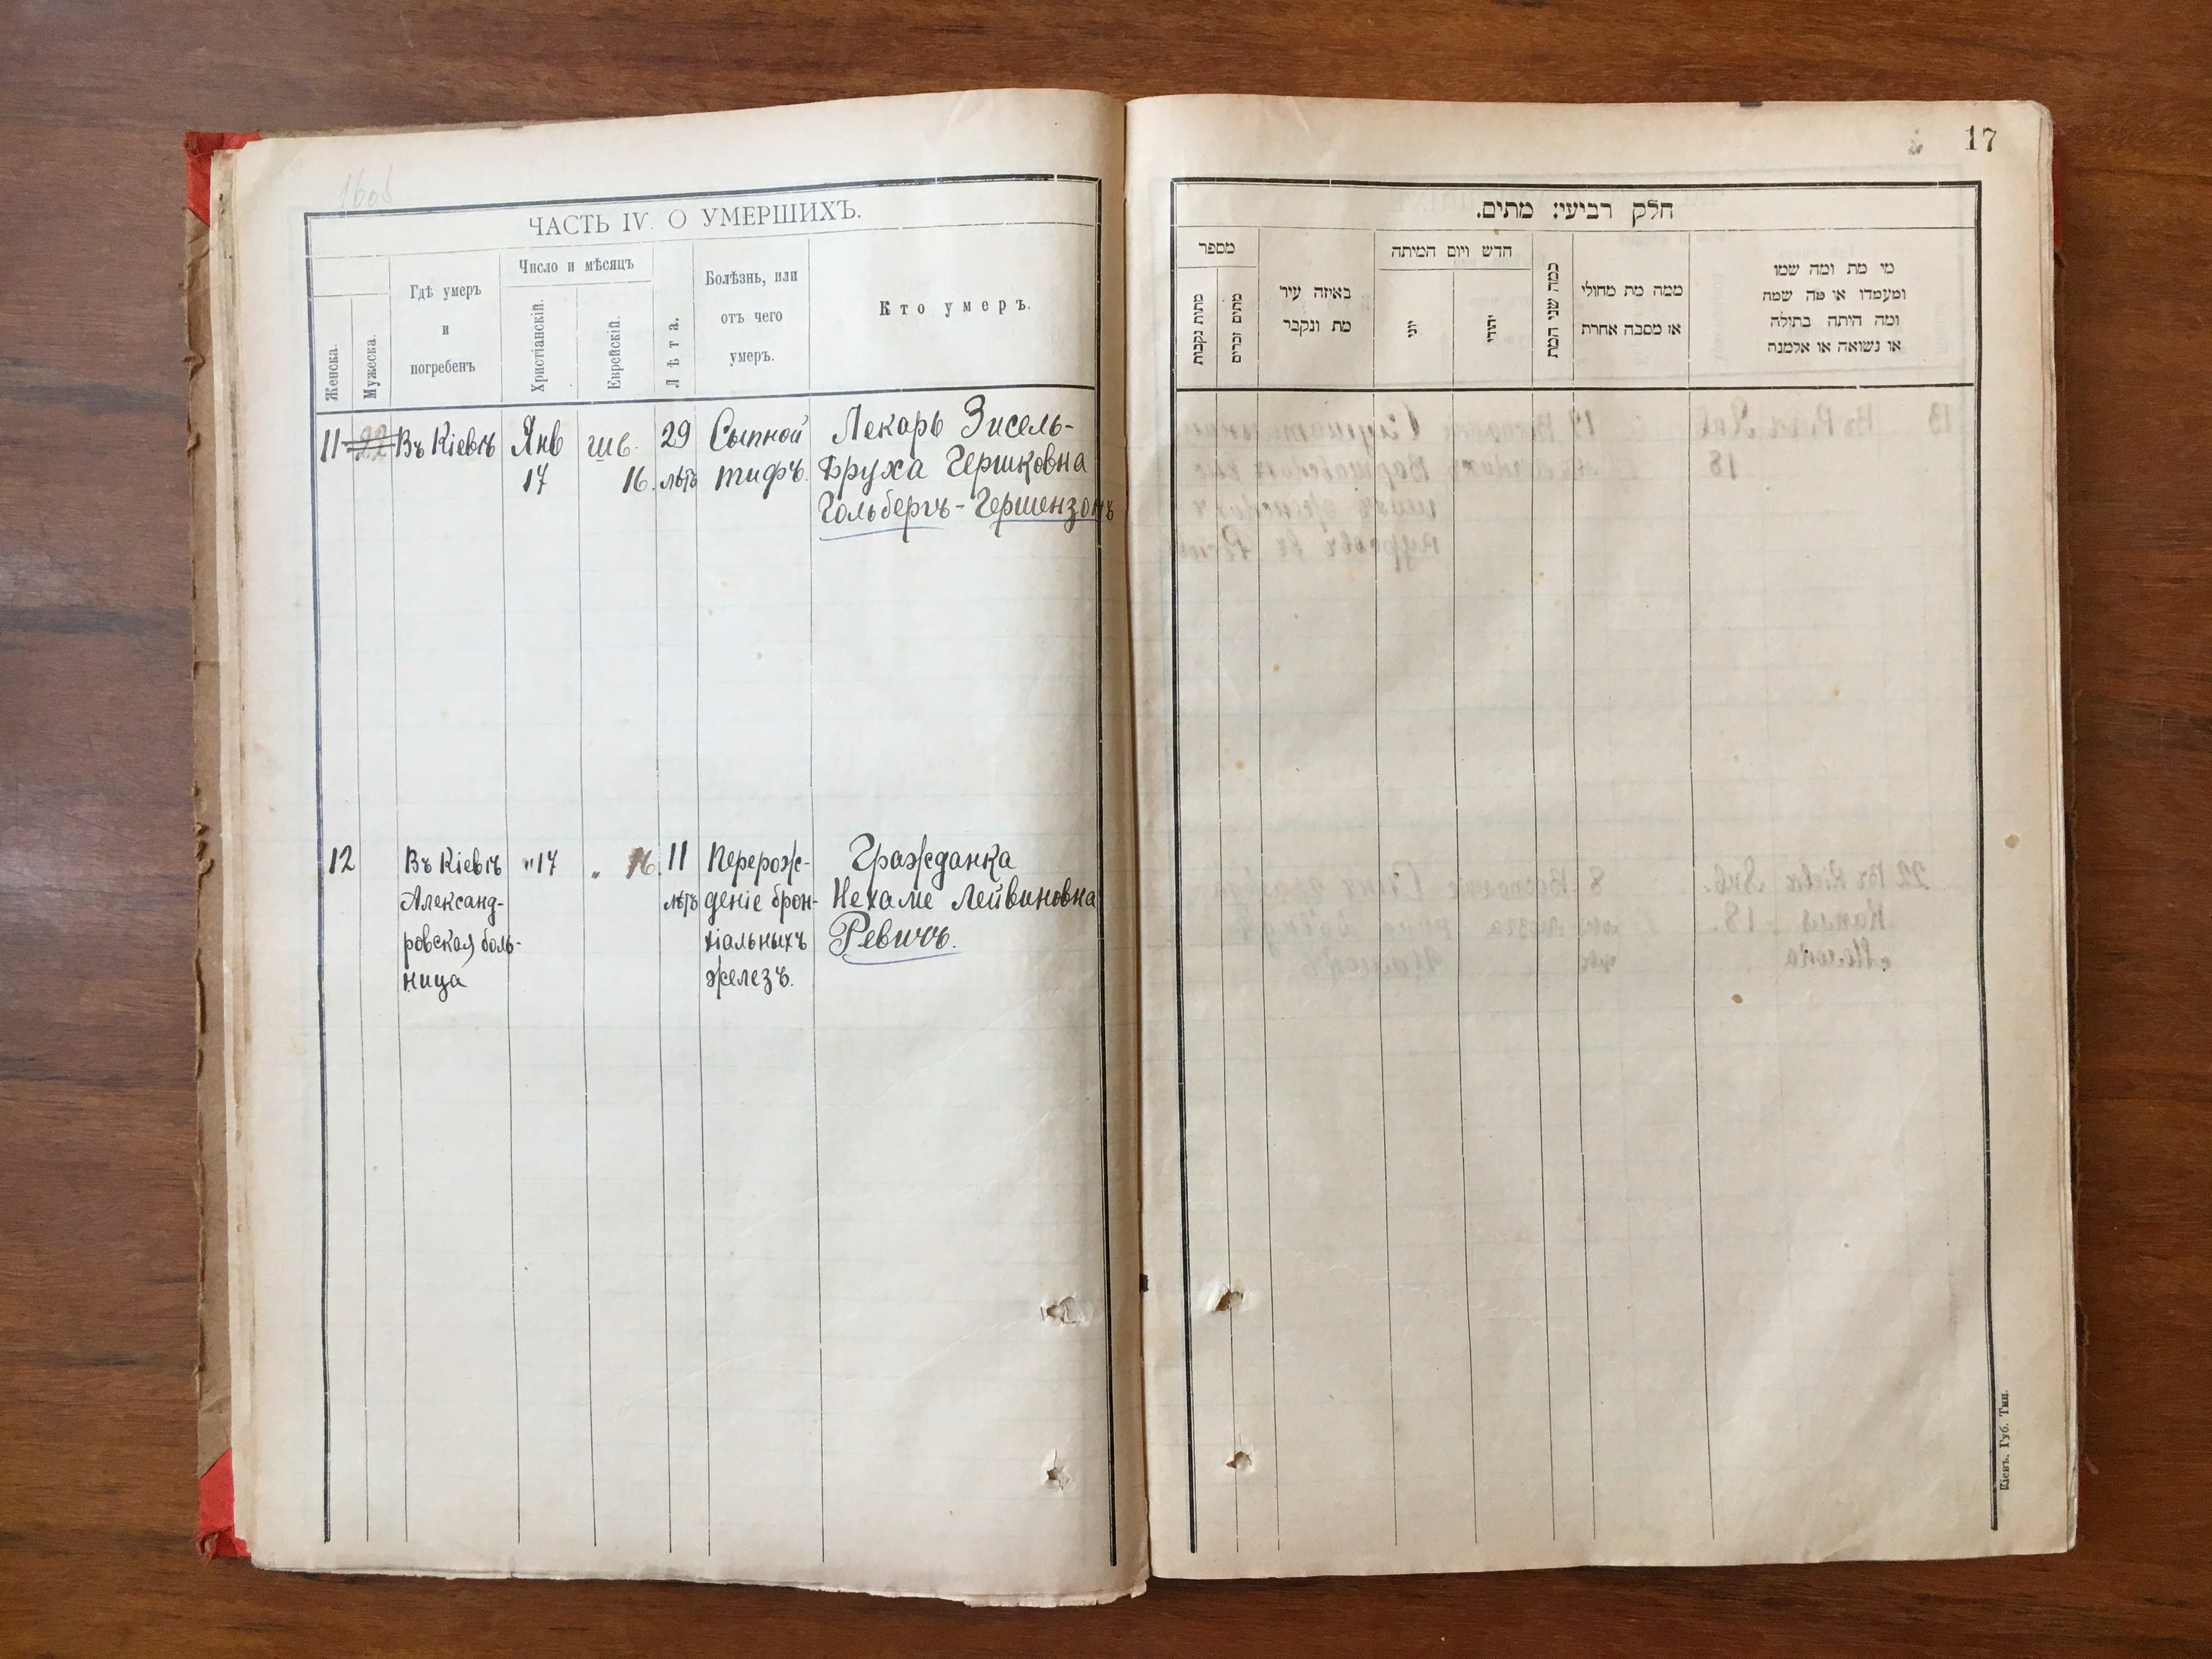 ЧАСТЬ IV. О УМЕРШИХЪ.
Женска.
Мужеска.
Гдѣ умеръ
и
погребенъ
Число и мѣсяцъ
Христіанскій.
Еврейскій.
Лѣта.
Болѣзнь, или
отъ чего
умеръ.
Кто умеръ.
11 22 Въ Кіевѣ Янв шв. 29 Сыпной Лекарь Зисель-
17 16. лѣтъ тифъ. Бруха Гершковна
Гольбергъ-Гершензонъ
12 Въ Кіевѣ "17 " 16. 11 Перерож- Гражданка
Александ- лѣтъ деніе брон- Нехаме Лейвиновна
ровская боль- хіальныхъ Ревичъ.
ница железъ.
17
חלק רביעי: מתים.
מספר
מתות נקבות
מתים זכרים
באיזה עיר
מת ונקבר
חדש ויום המיתה
יוני
יהודי
כמה שני המת
ממה מת מחולי
או מסבה אחרת
מי מת ומה שמו
ומעמדו או מה שמה
ומה היתה בתולה
או נשואה או אלמנה
Кіевъ. Губ. Тип.